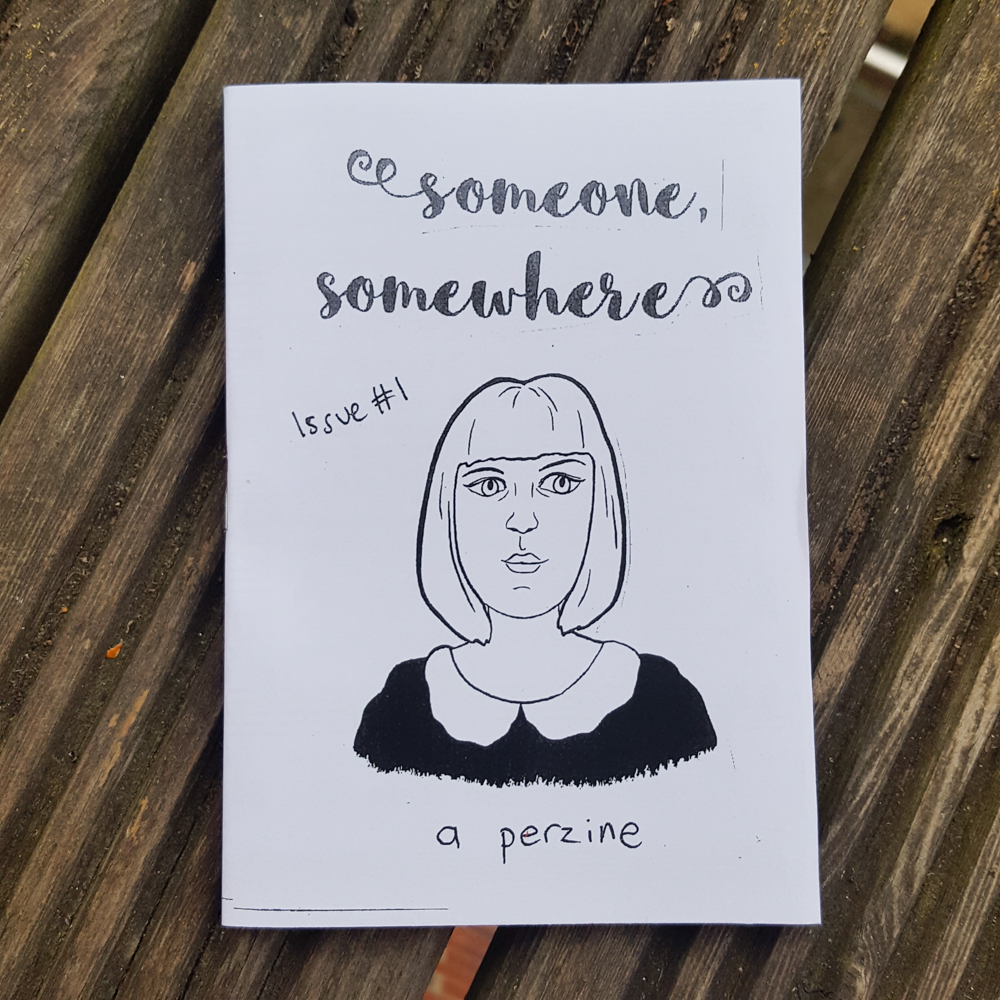 someone,
somewhere
Issue #1
a perzine